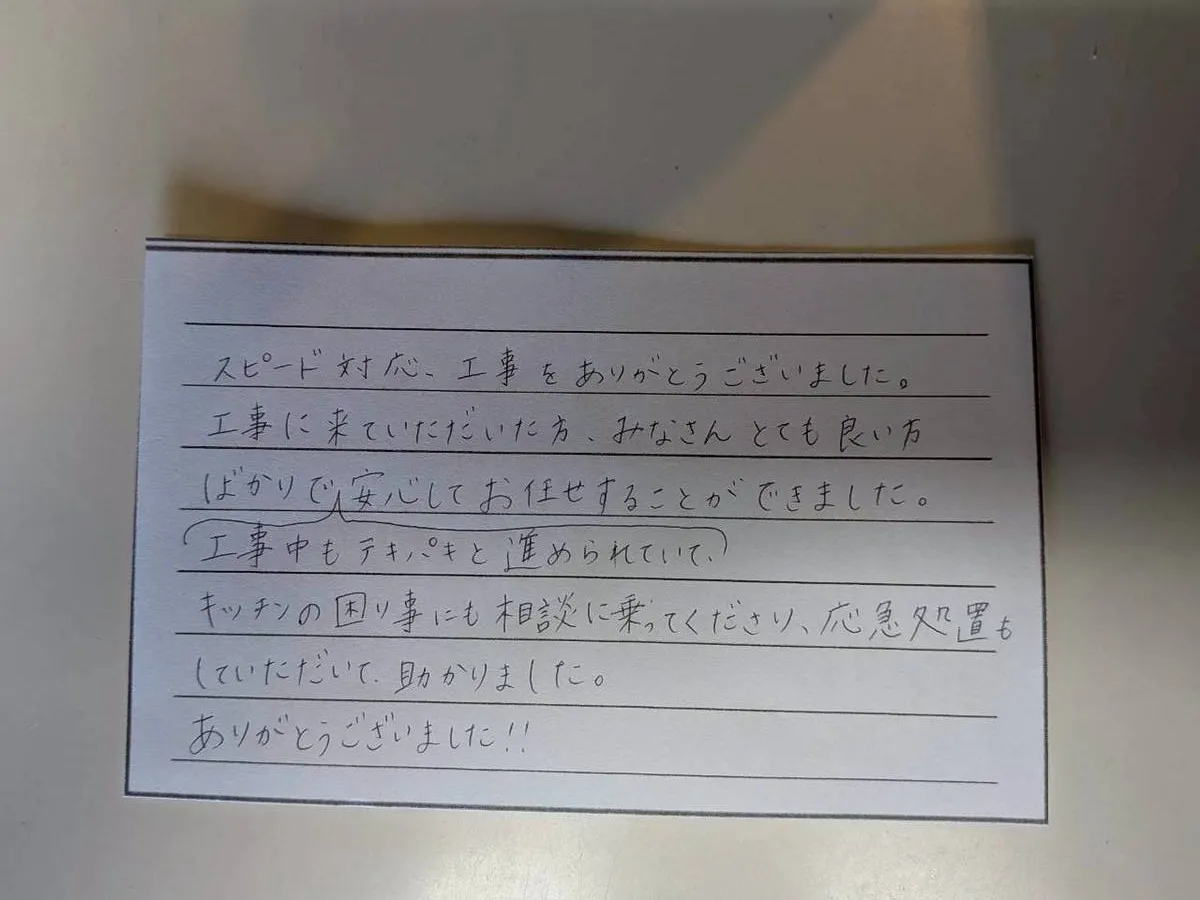 スピード対応、工事をありがとうございました。
工事に来ていただいた方、みなさんとても良い方
ばかりで安心してお任せすることができました。
工事中もテキパキと進められていて、
キッチンの困り事にも相談に乗ってくださり、応急処置も
していただいて、助かりました。
ありがとうございました!!